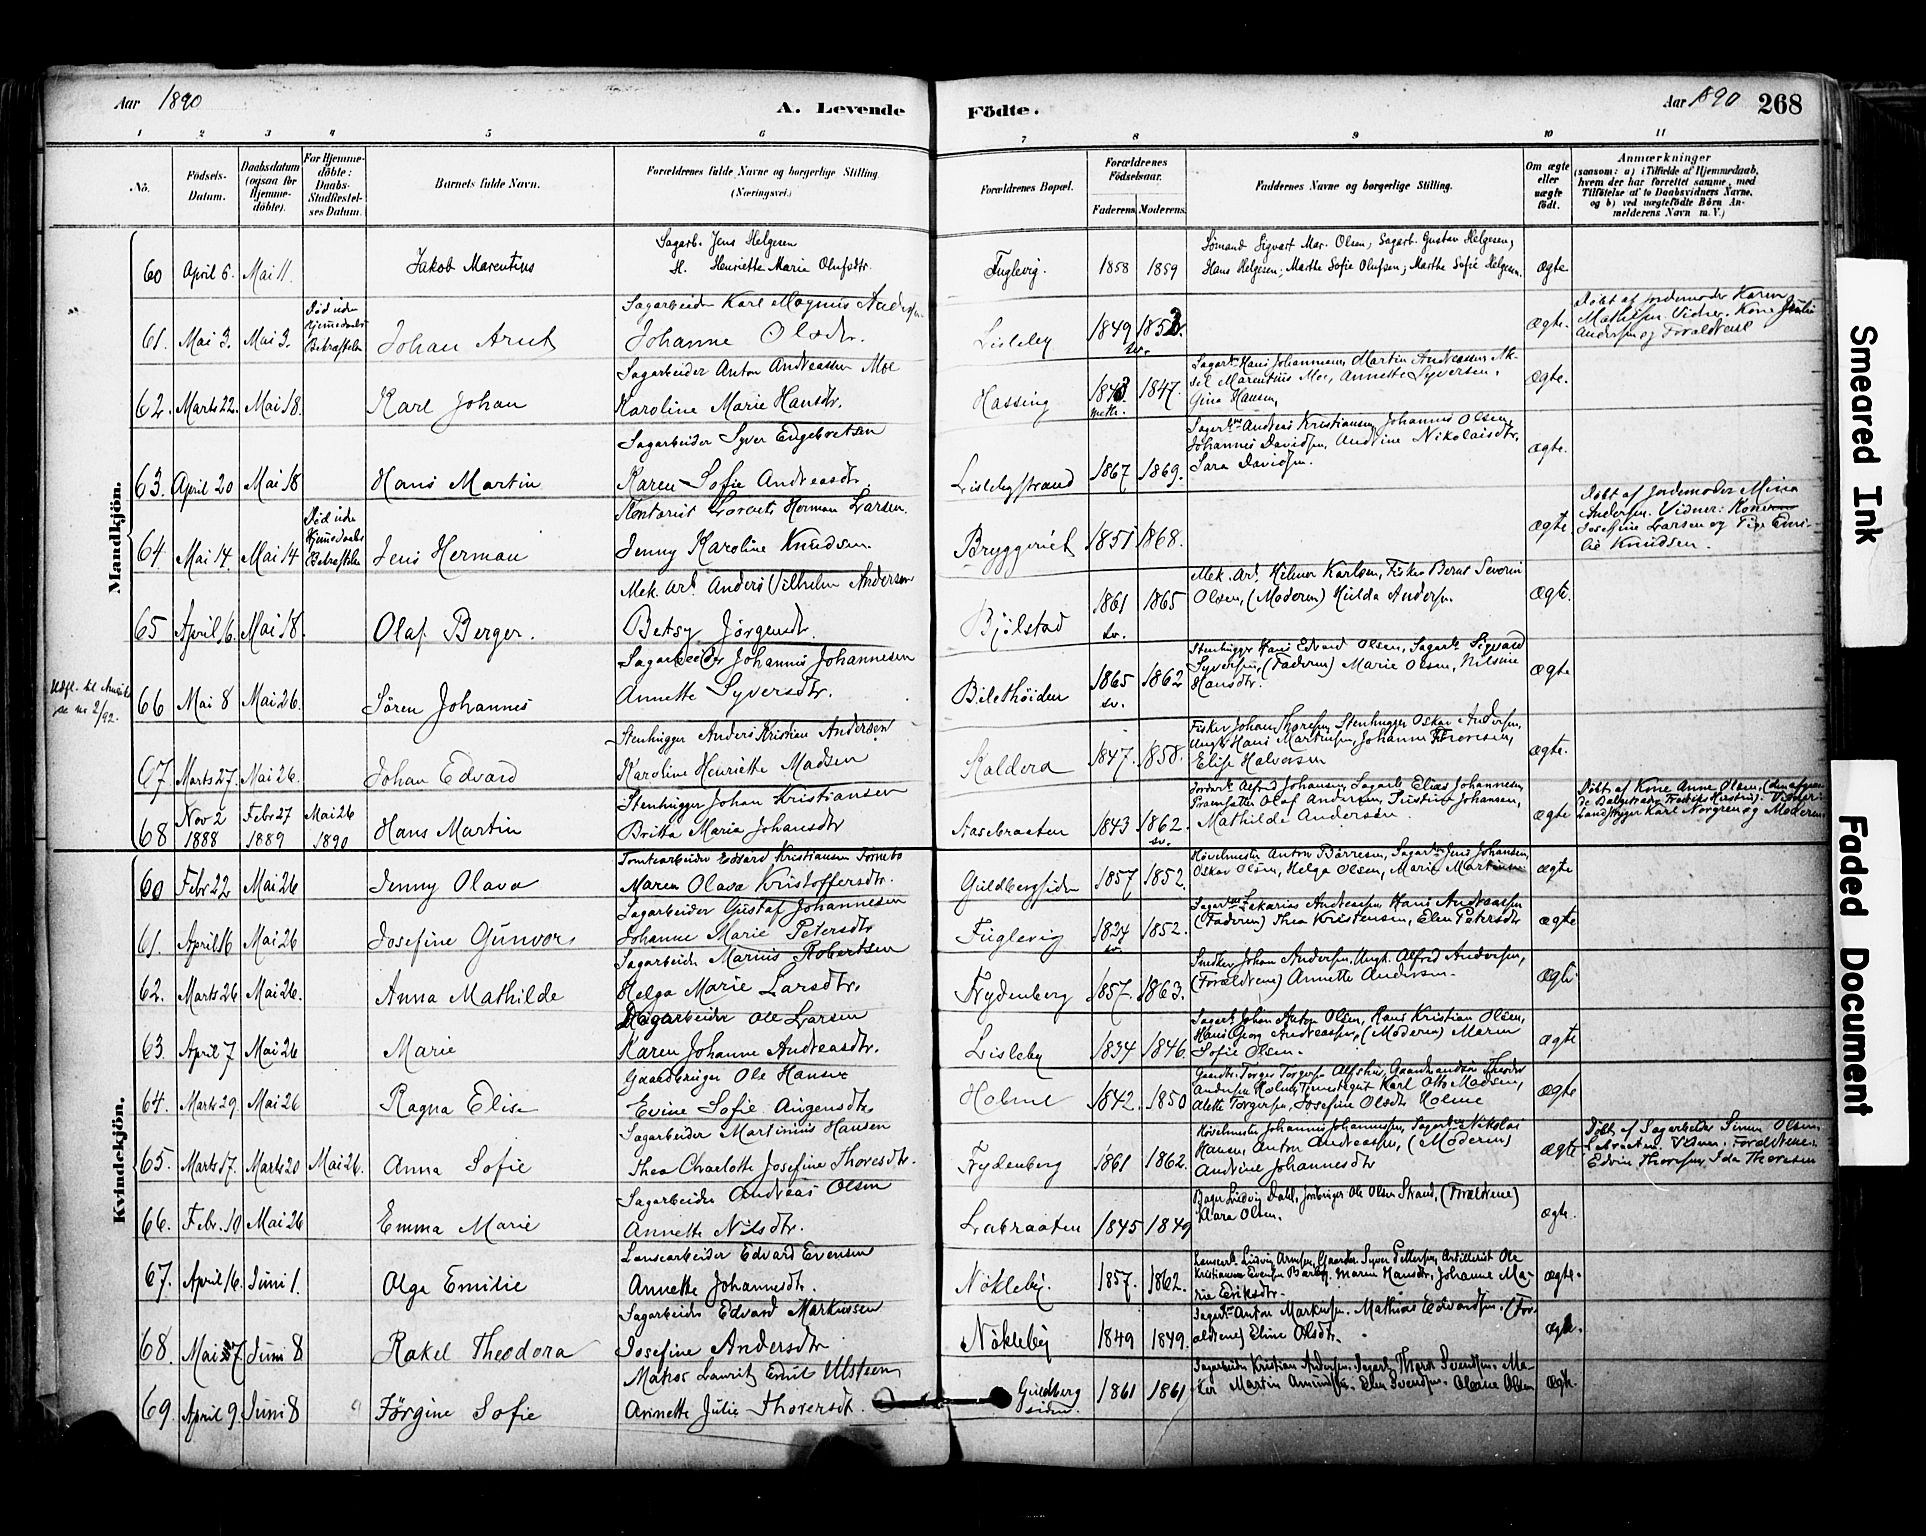 Aar 1890
A. Levende
Fødte.
Aar 1890 268
1 2 3 4 5 6 7 8 9 10 11
No.
Födsels-
Datum.
Daabsdatum
(ogsaa for
Hjemme-
döbte).
For Hjemme-
döbte:
Daabs-
Stadfæstel-
ses Datum.
Barnets fulde Navn.
Forældrenes fulde Navne og borgerlige Stilling.
(Næringsvei.)
Forældrenes Bopæl.
Forældrenes
Födselsaar.
Faderens. Moderens.
Faddernes Navne og borgerlige Stilling.
Om ægte
eller
uægte
födt.
Anmærkninger
(saasom: a) i Tilfælde af Hjemmedaab,
hvem der har forrettet samme, med
Tilföielse af to Daabsvidners Navne,
og b) ved uægtefödte Börn An-
melderens Navn m. V.)
Mandkjön.
Sagarb. Jens Helgesen
Sömand Sigvart Mar. Olsen, Sagarb. Gustav Helgesen,
60 April 6. Mai 11. Jakob Marentius H. Henriette Marie Olufsdtr. Fuglevig. 1858 1859 Hans Helgesen, Marthe Sofie Olufsen, Marthe Sofie Helgesen. ægte
Död uden
Hjemmedaabs
Bekræftelse
Sagarbeider Karl Magnus Andersen
61. Mai 3. Mai 3. Johan Arnt Johanne Olsdtr. Lisleby 1849 1853 ægte.
sv.
Döbt af Jordemoder Karen
Mathisen. Vidner. Kone Julie
Andersen og Forældrene
Sagarbeider Anton Andreassen Moe
Sagarb. Hans Johannesen, Martin Andreassen, Ak-
sel Marentius Moe, Annette Syversen,
Gina Hansen,
62. Marts 22. Mai 18. Karl Johan Karoline Marie Hansdtr. Hassing 1843 1847. ægte.
Sagarbeider Syver Engebretsen
Sagarbne Andreas Kristiansen, Johannes Olsen,
Johannes Davidsen, Andrine Nikolaisdtr,
Sara Davidsen.
63. April 20 Mai 18 Hans Martin Karen Sofie Andreasdtr. Lislebystrand 1867 1869. ægte.
Död uden
Hjemmedaabs
Bekræftelse
Kontorist Lorents Herman Larsen.
64. Mai 14 Mai 14 Jens Herman Jenny Karoline Knudsen. Bryggeriet 1851 1868. ægte
Döbt af Jordemoder Mina
Andersen. Vidner: Konerne
Josefine Larsen og Pige Emi-
lie Knudsen.
Mek. Arb. Anders Vilhelm Andersen
Mek. Arb. Hilmar Karlsen, Fisker Bernt Severin
Olsen, (Moderen) Hulda Andersen.
65 April 16. Mai 18 Olaf Berger. Betsy Jörgensdtr. Bjölstad 1861 1865 ægte.
sv.
Sagarbeider Johannes Johannesen
Stenhugger Hans Edvard Olsen, Sagarb. Sigvard
Syversen, (Faderen) Marie Olsen, Nilsine
Hansdtr.
Udfl. til Amerik
se nr 2/92.
66 Mai 8 Mai 26. Sören Johannes Annette Syversdtr. Bilethöiden 1865 1862 ægte
sv.
Stenhugger Anders Kristian Andersen
Fisker Johan Thoresen, Stenhugger Oskar Andersen,
Ungk. Hans Martinsen, Johanne Thoresen,
Elise Halvorsen
67 Marts 27. Mai 26. Johan Edvard Karoline Henriette Madsen Kaldera 1847. 1858. ægte.
Stenhugger Johan Kristiansen
Jordarb. Alfred Johansen, Sagarb. Elias Johannesen,
Olaf Andersen, Justine Johansen,
Mathilde Andersen.
68 Nov 2 1888 Febr 27 1889 Mai 26 1890 Hans Martin Britta Maria Johansdtr Aasebraaten 1843 1862. ægte
sv.
Döbt af Kone Anne Olsen,
Karl Norgren og Moderen
Kvindekjön.
Tomtearbeider Edvard Kristiansen Törnebo
Hövelmester Anton Börresen, Sagarbne Jens Johansen,
Oskar Olsen, Helga Olsen, Marie Martinsen
60 Febr 22 Mai 26 Jenny Olava Maren Olava Kristoffersdtr. Guldbergsiden 1857 1852. ægte
Sagarbeider Gustaf Johannesen
Sagarbne Zakarias Andreassen, Hans Andreassen
(Faderen) Thea Kristensen, Elen Petersdtr
61. April 16 Mai 26 Josefine Gunvor Johanne Marie Petersdtr Fuglevig 1824 1852. ægte
sv.
Sagarbeider Marius Robertsen
Snedker Johan Andersen, Ungk. Alfred Andersen,
(Forældrene) Annette Andersen.
62. Marts 26 Mai 26. Anna Mathilde Helga Marie Larsdtr. Frydenberg 1857. 1863. ægte
Sagarbeider Ole Larsen
Sagarb. Johan Anton Olsen, Hans Kristian Olsen,
Hans Georg Andreassen, (Moderen) Maren
Sofie Olsen.
63. April 7 Mai 26 Marie Karen Johanne Andreasdtr. Lisleby 1834 1846. ægte
Gaardbruger Ole Hansen
Gaardbr. Torger Torgersen Alfshus, Gaardmandssön Theodor
Andersen Holme, Tjenestegut Karl Otto Madsen,
Alette Torgersen, Josefine Olsdtr Holme
64. Marts 29. Mai 26 Ragna Elise Evine Sofie Augensdtr. Holme 1842. 1850 ægte
Sagarbeider Martinius Hansen
Hövelmester Johannes Johannessen, Sagarbne Nikolai
Hansen, Anton Andreassen, (Moderen)
Andrine Johannesdtr
65. Marts 17. Marts 20 Mai 26. Anna Sofie Thea Charlotte Josefine Thoresdtr. Frydenberg 1861 1862. ægte
Döbt af Sagarbeider Simen Olsen
Labraaten. Vidner. Forældrene.
Edvin Thoresen, Ida Thoresen
Sagarbeider Andreas Olsen
Bager Ludvig Dahl, Ole Olsen Strand, (Forældrene)
Klara Olsen.
66. Febr. 10 Mai 26 Emma Marie Annette Nilsdtr. Labraaten 1845 1849 ægte.
Lensearbeider Edvard Evensen
Lensearb. Ludvig Arnesen, Gaardbr. Syver Pettersen, Artillerist Ole
Kristiansen Evensen Barby, Maren Hansdtr, Johanne Ma-
rie Eriksdtr.
67. April 16. Juni 1. Olga Emilie Annette Johannesdtr. Nökleby. 1857. 1862. ægte.
Sagarbeider Edvard Markussen
Sagarbne Anton Markussen. Mathias Edvardsen. (For-
ældrene) Eline Olsdtr.
68. Mai 7 Juni 8 Rakel Theodora Josefine Andersdtr Nökleby 1849 1849. ægte.
Matros Laurits Emil Ulsteen
Sagarbeider Kristian Andersen. Sagarb. Thorer Svendsen. Ma-
ker Martin Amundsen. Elen Svendsen. Olene Olsen
69. April 9. Juni 8 Jörgine Sofie Annette Julie Thoresdtr. Guldberg
siden. 1861 1861 ægte.
Smeared Ink
Faded Document